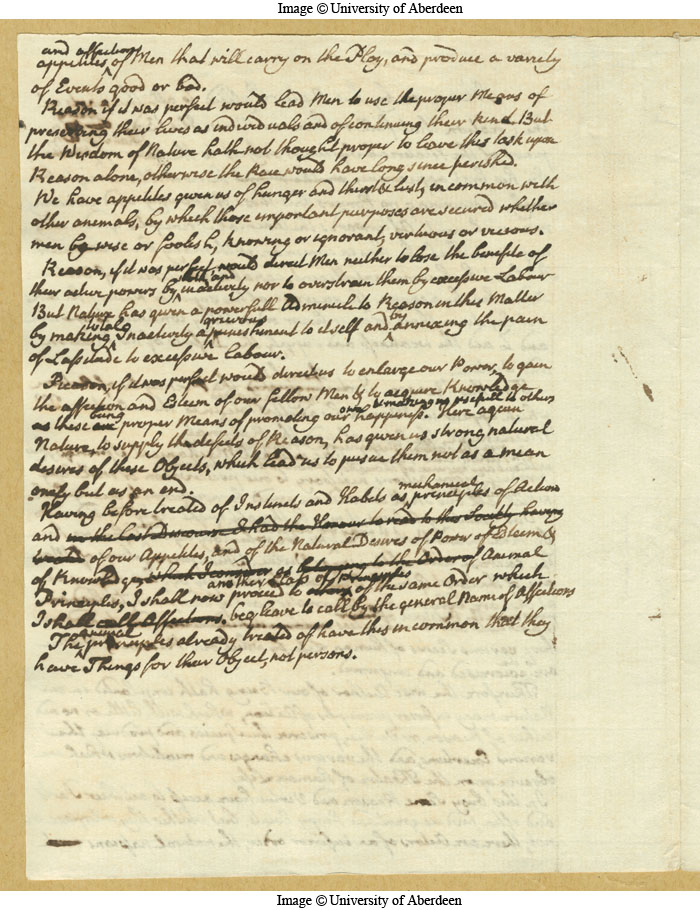 Image © University of Aberdeen
and affections
appetites of Men that will carry on the Play, and produce a variety
of Events good or bad.
Reason if it was perfect would lead Men to use the proper Means of
preserving their lives as individuals and of continuing their kind But
the Wisdom of Nature hath not thought proper to leave this task upon
Reason alone, otherwise the Race would have long since perished.
We have appetites given us of hunger and thirst & lust, in common with
other animals, by which those important purposes are secured whether
men be wise or foolish, knowing or ignorant, vertuous or vicious.
Reason, if it was perfect would direct Men neither to lose the benefite of
their active powers by inactivity nor to overstrain them by excessive Labour
But Nature has given a powerfull Adminicle to Reason in this Matter
total grievous by
by making Inactivity a punishment to itself and annexing the pain
of Lassitude to excessive Labour.
Reason, if it was perfect would direct us to enlarge our Power, to gain
the affection and Esteem of our fellow Men & to acquire Knowledge
being own
as these are proper Means of promoting our happiness. Here again
Nature, to supply the defects of Reason, has given us strong natural
desires of these Objects, which lead us to pursue them not as a mean
onely but as an end.
mechanical
Having before treated of Instincts and Habits as principles of Action
and in the last Discourse I had the Honour to read to this Society having
of our Appetites, and of the Natural Desires of Power of Esteem &
of Knowledge, which I consider as belonging to the Order of Animal
another Class of principles
Principles, I shall now proceed to of the same Order which
I shall call Affections, beg leave to call by the general Name of Affections
animal
The principles already treated of have this in common that they
have Things for their Object, not persons.
Image © University of Aberdeen